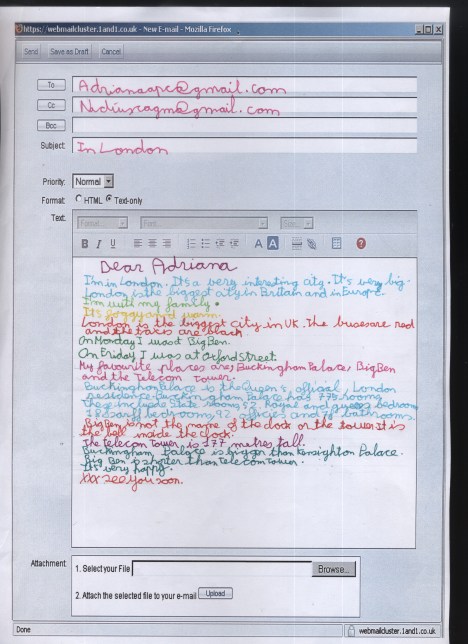 https://webmailcluster.1and1.co.uk - New E-mail - Mozilla Firefox
Send Save as Draft Cancel
To Adrianaapc@gmail.com
Cc @gmail.com
Bcc
Subject: In London
Priority: Normal
Format: HTML Text-only
Text: Format Font Size
B I U A A
Dear Adriana
I'm in London. It's a very interesting city. It's very big.
London is the biggest city in Britain and in Europe.
I'm with my family.
It's foggy and warm.
London is the biggest city in UK. The buses are red
and the taxis are black.
On Monday I was at Big Ben.
On Friday I was at Oxford Street.
My favourite places are; Buckingham Palace, Big Ben
and the Telecon Tower.
Buckingham Palace is the Queen's, official, London
residence. Buckingham Palace has 775 rooms.
These include State rooms, 52 Royal and guess bedroom
188 staff bedrooms, 92 offices and 78 bathrooms.
Big Ben is not the name of the clock or the tower it is
the bell inside the clock.
The telecon Tower, is 177 metres tall.
Buckingham Palace is bigger than Kensighton Palace.
Big Ben is shorter than Telecon Tower.
It's very happy.
XXX see you soon.
Attachment 1. Select your File Browse...
2. Attach the selected file to your e-mail Upload
Done webmailcluster.1and1.co.uk